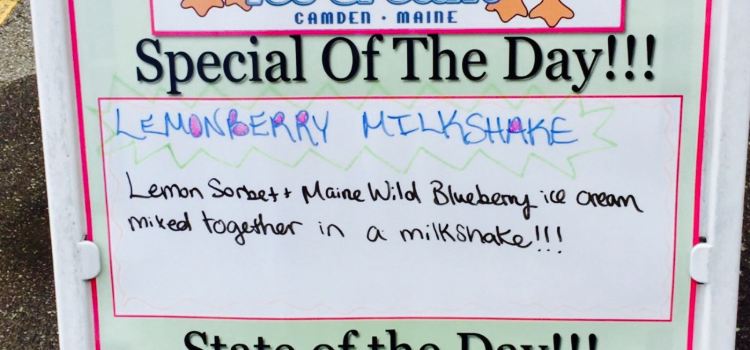 CAMDEN • MAINE
Special Of The Day!!!
LEMONBERRY MILKSHAKE
Lemon Sorbet + Maine Wild Blueberry ice cream
mixed together in a milkshake!!!
State of the Day!!!